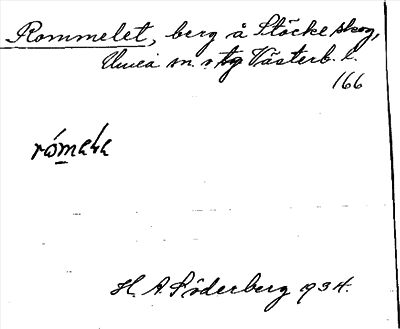 Rommelet, berg å Stöcke skog,
Umeå sn. o tg Västerb. l.
166
H. A. Söderberg 1934.